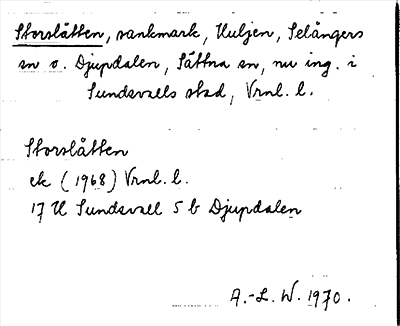 Storslåtten, sankmark, Huljen, Selångers
sn o. Djupdalen, Sättna sn, nu ing. i
Sundsvalls stad, Vrnl. l.
Storslåtten
ek (1968) Vrnl. l.
17 H Sundsvall 5 b Djupdalen
A.-L. W. 1970.